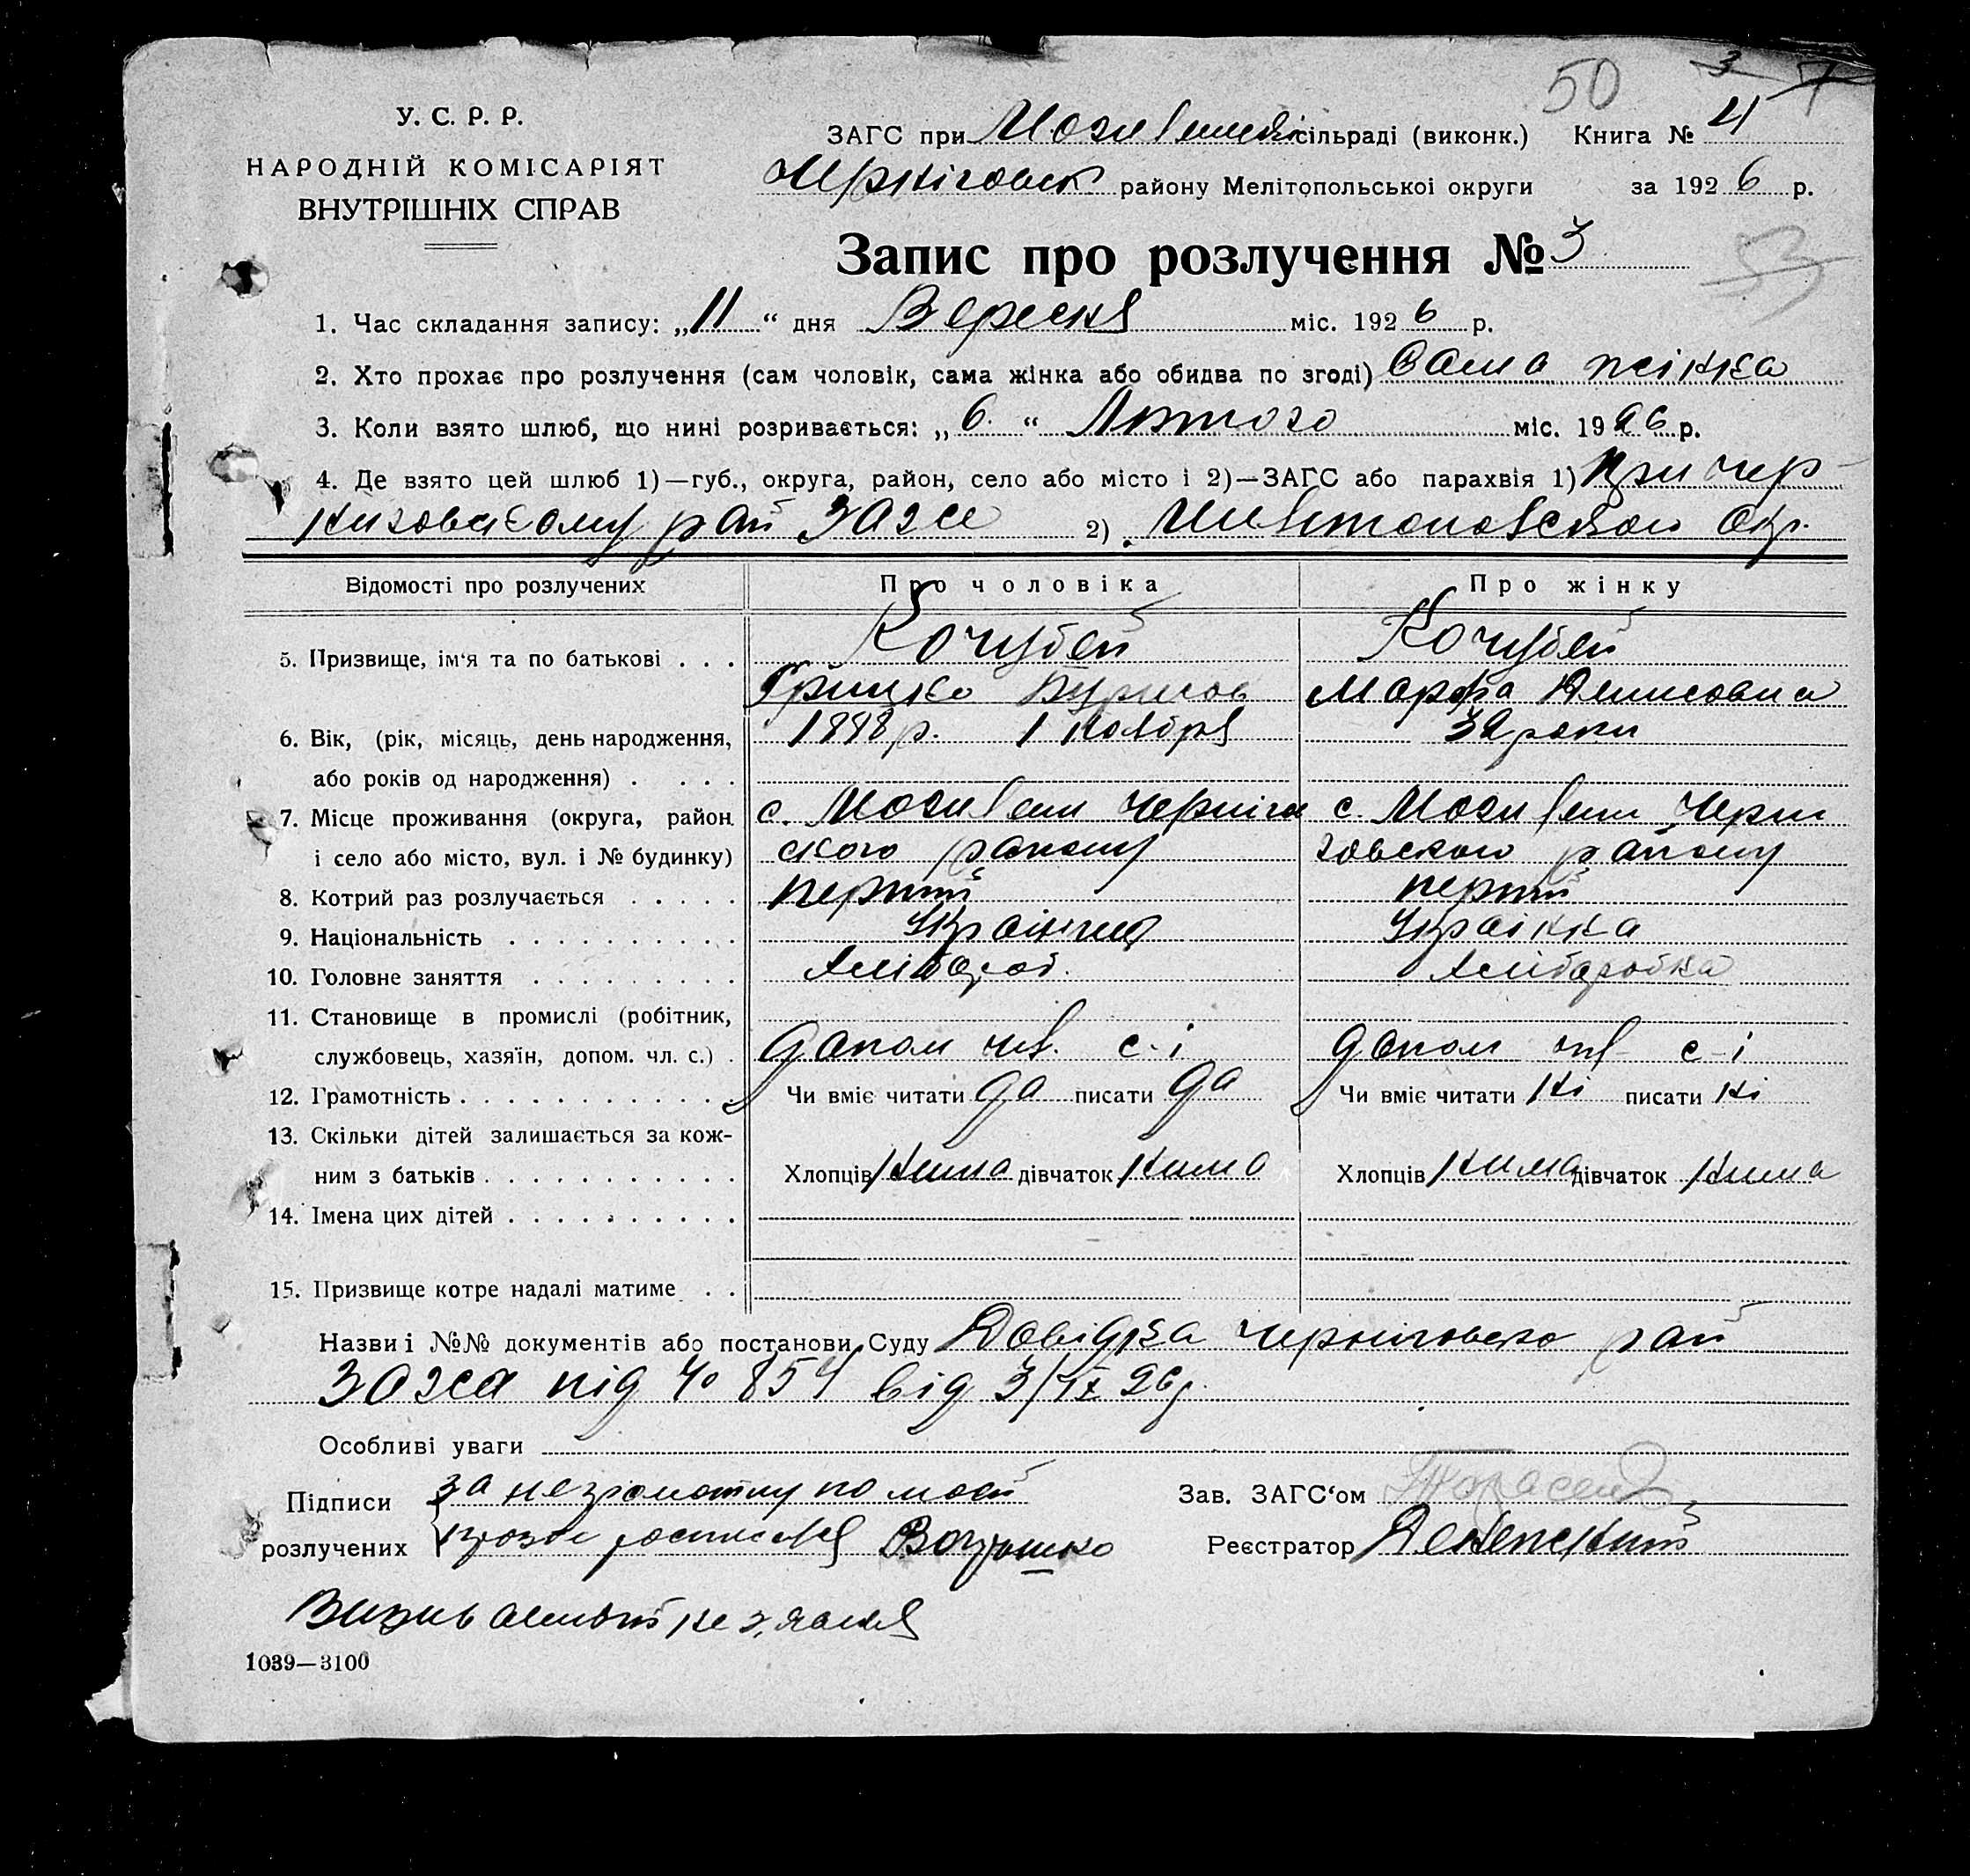 50 3 7
У. С. Р. Р.
НАРОДНІЙ КОМІСАРІЯТ
ВНУТРІШНІХ СПРАВ
ЗАГС при сільраді (виконк.) Книга № 4
району Мелітопольської округи за 1926 р.
Запис про розлучення № 3
53
1. Час складання запису: „11“ дня Вересня міс. 1926 р.
2. Хто прохає про розлучення (сам чоловік, сама жінка або обидва по згоді) Сама жінка
3. Коли взято шлюб, що нині розривається: „6“ Лютого міс. 1926 р.
4. Де взято цей шлюб 1)—губ., округа, район, село або місто і 2)—ЗАГС або парахвія 1) При Чер-
рай ЗАГСе 2) Окр.
Відомості про розлучених Про чоловіка Про жінку
5. Призвище, ім‘я та по батькові . . . Кочубей Кочубей
Грицко Марфа
6. Вік, (рік, місяць, день народження, р. 1 Ноября 32 роки
або років од народження) . . . .
7. Місце проживання (округа, район с. с.
і село або місто, вул. і № будинку) ского району говского району
8. Котрий раз розлучається . . . . . перший перший
9. Національність . . . . . . . . . . Українець Українка
10. Головне заняття . . . . . . . . . Хлібороб. Хліборобка
11. Становище в промислі (робітник,
службовець, хазяїн, допом. чл. с.) . допом чл. с-і допом чл с-і
12. Грамотність . . . . . . . . . . . . Чи вміє читати да писати да Чи вміє читати ні писати ні
13. Скільки дітей залишається за кож-
ним з батьків . . . . . . . . . . . Хлопців Нима дівчаток Нима Хлопців Нима дівчаток Нима
14. Імена цих дітей . . . . . . . . . .
15. Призвище котре надалі матиме . .
Назви і №№ документів або постанови Суду Довідка рай
ЗАГСа під № 854 від 3/IX 26р.
Особливі уваги
Підписи за неграмотну по моей Зав. ЗАГС‘ом
розлучених Реєстратор
не
1039—3100